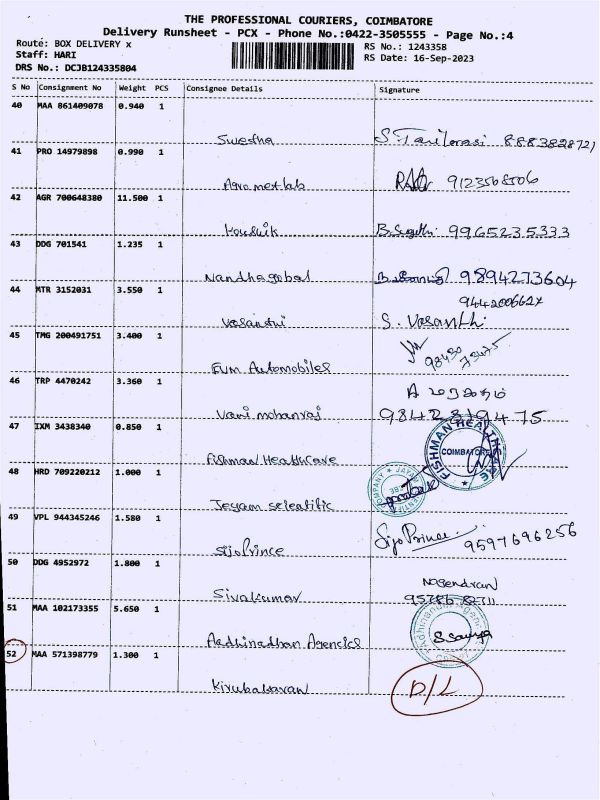 THE PROFESSIONAL COURIERS, COIMBATORE
Delivery Runsheet - PCX - Phone No.:0422-3505555 - Page No.:4
Route: BOX DELIVERY x
RS No.: 1243358
Staff: HARI
RS Date: 16-Sep-2023
DRS No.: DCJB124335804
S No Consignment No Weight PCS Consignee Details Signature
40 MAA 861409078 0.940 1
Swetha 8883828721
41 PRO 14979898 0.990 1
Agro met lab 9123568506
42 AGR 700648380 11.500 1
Koushik 9965235333
43 DDG 701541 1.235 1
Nandhagobal 9894273604
44 MTR 3152031 3.550 1
Vasanthi S. Vasanthi
45 TMG 200491751 3.400 1
FVM Automobiles
46 TRP 4470242 3.360 1
Vani mohanraj
47 IXM 3438340 0.850 1
Fishman Healthcare FISHMAN HEALTHCARE COIMBATORE
48 HRD 709220212 1.000 1
Jeyam scientific
49 VPL 944345246 1.580 1
Sijo Prince Sijo Prince 9597696256
50 DDG 4952972 1.800 1
Nagendran
Sivakumar
51 MAA 102173355 5.650 1
Aadhinadhan Agencies
52 MAA 571398779 1.300 1
Kirubakaran D/L